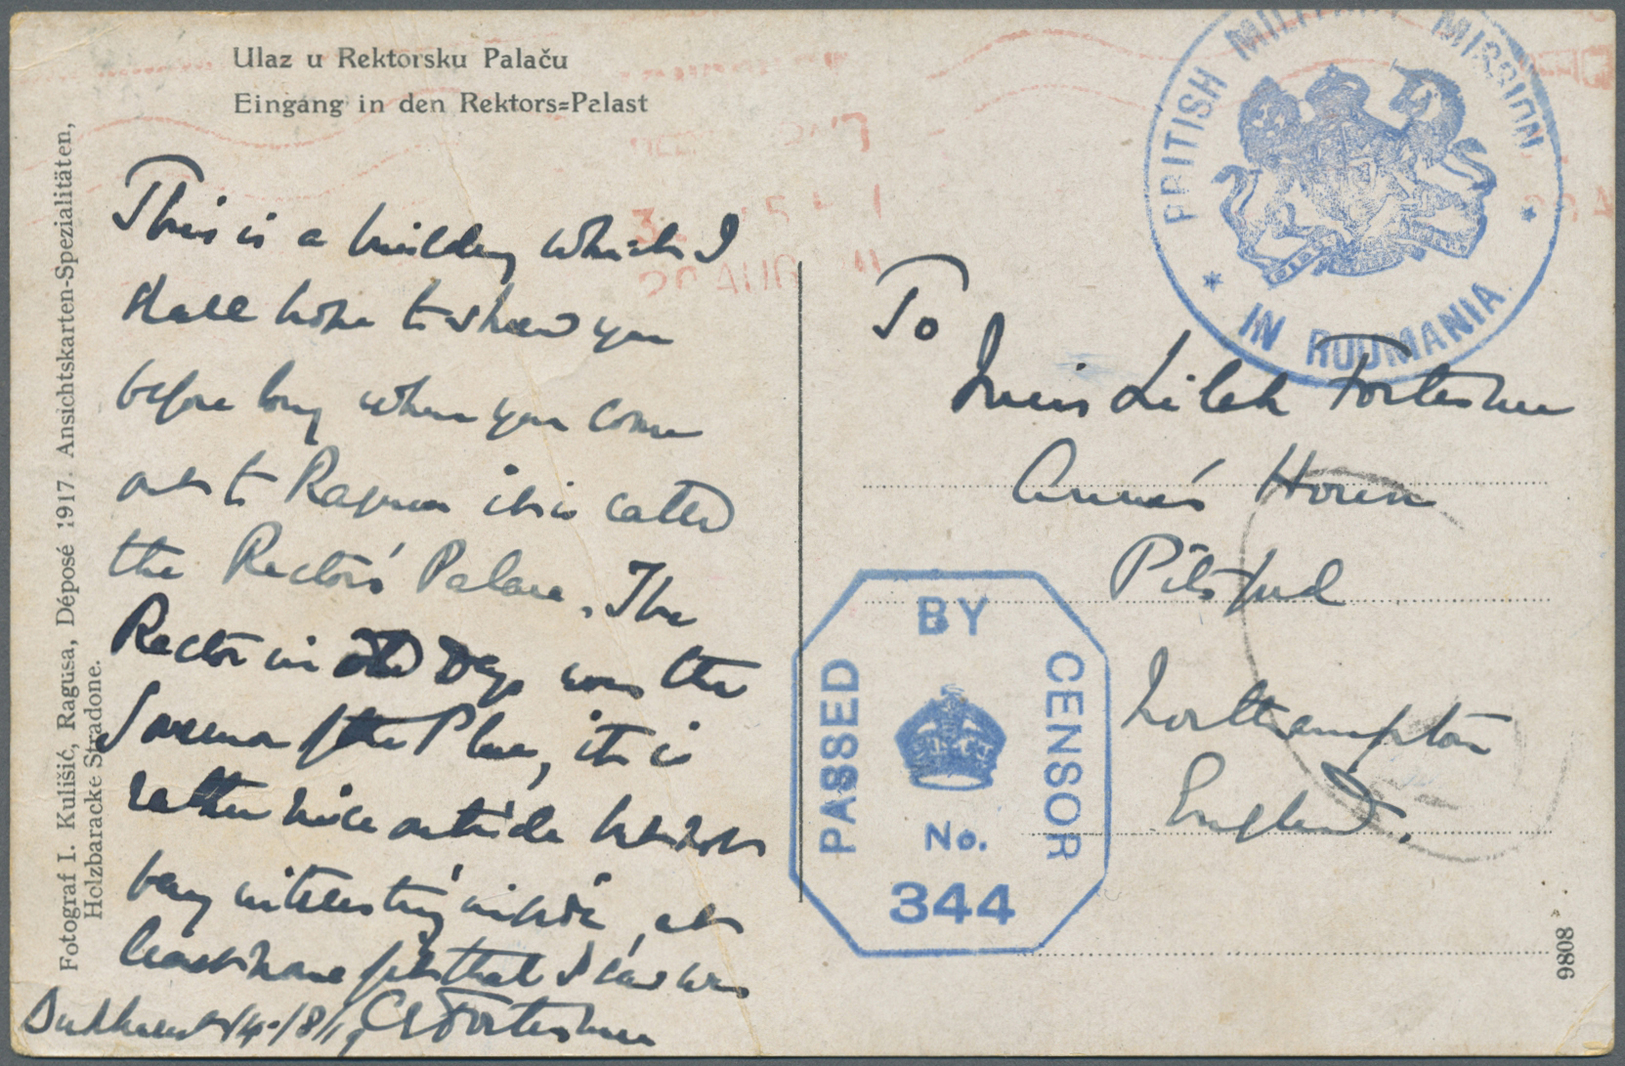 Ulaz u Rektorsku Palaču
Eingang in den Rektors=Palast
This is a building which I
shall hope to show you
before long when you come
out to Ragusa it is called
the Rector's Palace. The
Rector in old days was the
Governor of the Place, it is
rather nice outside but not
very interesting inside, at
least none of it that I saw was
Bukharest 14/8/19 Fortescue
Fotograf I. Kulišić, Ragusa, Déposé 1917. Ansichtskarten-Spezialitäten,
Holzbaracke Stradone.
BRITISH MILITARY MISSION
IN ROUMANIA
20 AUG
To
Miss Lilah Fortescue
House
Pitsford
Northampton
England.
PASSED BY CENSOR
No.
344
9808